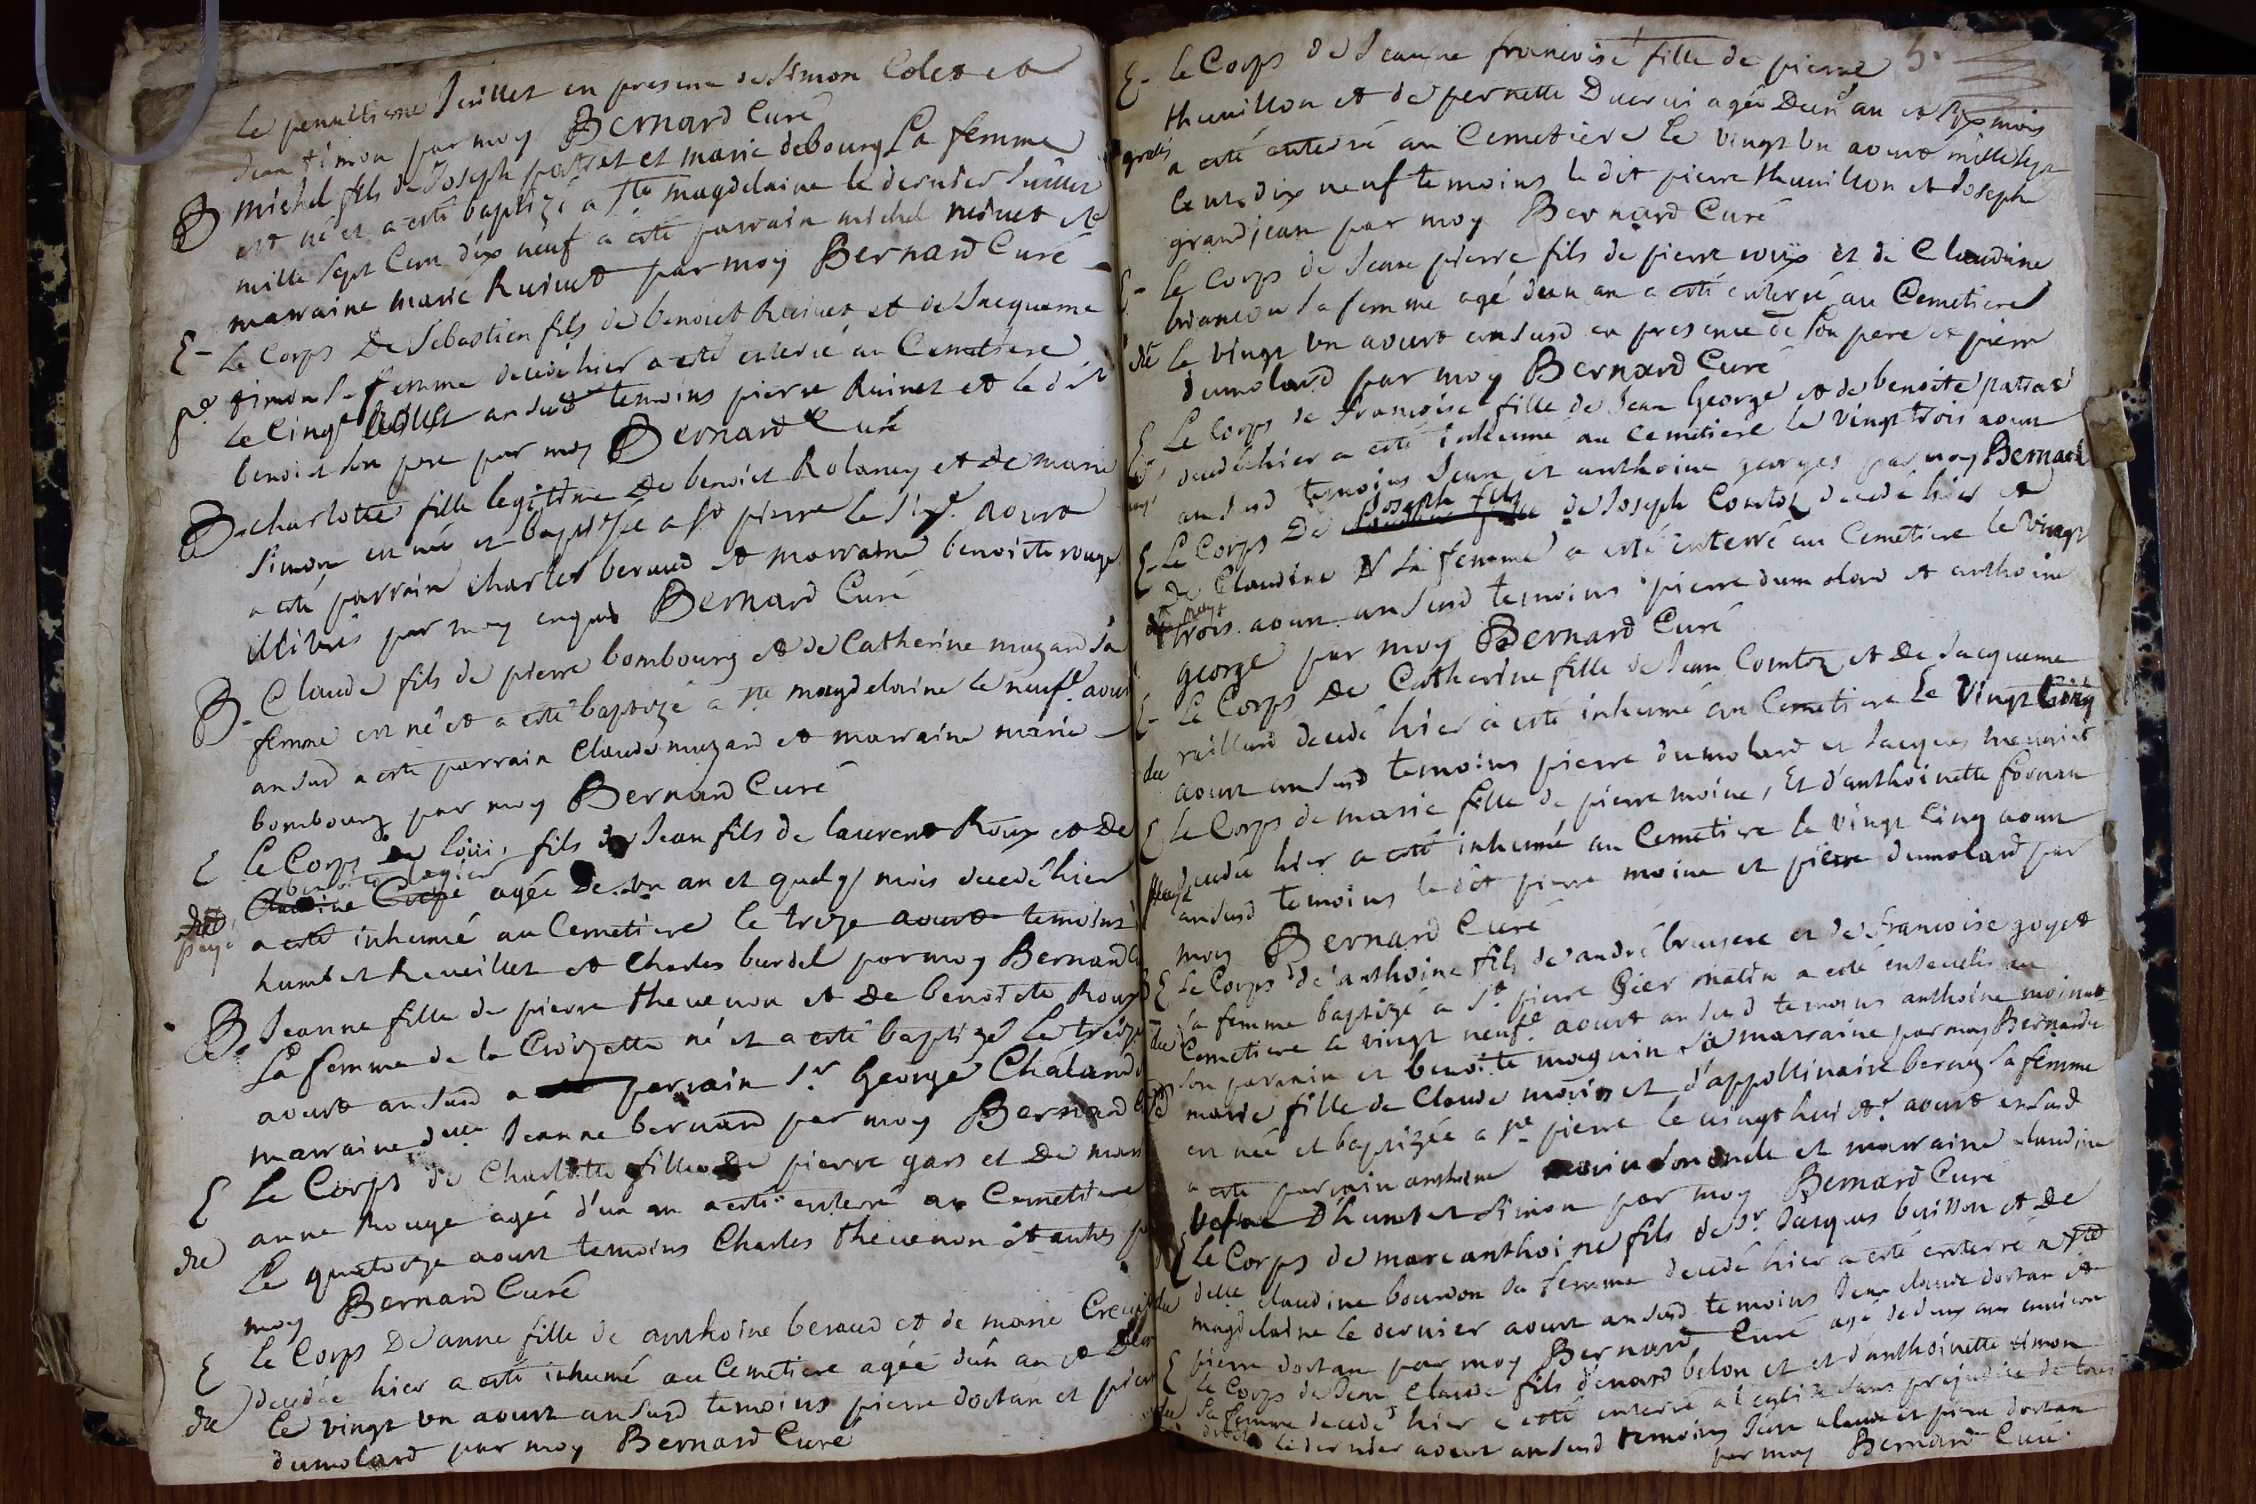 le penultieme Juillet en presence de Simon Colet et
Jean Simon par moy Bernard Curé
B michel fils de Joseph patrat et marie debourg La femme
est né et a esté baptizé a Ste magdelaine le dernier Juillet
mille sept Cent dix neuf a esté parrain michel ruinet et
marraine marie Ruinet par moy Bernard Curé
E- Le Corps De Sebastien fils de benoict Ruinet et de Jacqueme
Simon Sa femme decedé hier a esté enterré au Cemetiere
Le Cinqe aoust an susd temoins pierre Ruinet et le dit
benoist son pere par moy Bernard Curé
B- charlotte fille legitime De benoict Rolamy et de marie
Simon est née et baptisée a St pierre le sixe. aoust
a esté parrain charles beraud et marraine benoiste rouge
illitérés par moy enquis Bernard Curé
B- Claude fils de pierre bombourg et de Catherine muzard sa
femme est né et a esté baptizé a Ste magdelaine le neufe. aoust
an susd a esté parrain Claude muzard et marraine marie
bombourg par moy Bernard Curé
E Le Corps de Louis fils de Jean fils de laurent Roux et de
benoite legier
agée De un an et quelqs mois decedé hier
payé
a esté inhumé au Cemetiere le treze aoust temoins
humbert Reveillet et Charles burdel par moy Bernard
B. Jeanne fille de pierre thevenon et de benoiste Roux
La femme de la Croizette né et a esté baptizé Le treize
aoust an susd a parrain Sr. George Chaland
marraine delle Jeanne bernard par moy Bernard
E Le Corps de Charlotte fille De pierre gars et De marie
anne Rouge agée d'un an a esté enterré au Cemetiere
du Le quatorze aoust temoins Charles thevenon et autres
moy Bernard Curé
E Le Corps D'anne fille de anthoine beraud et de marie
decedée hier a esté inhumé au Cemetiere agée d'un an et
du Le vingt un aoust an susd temoins pierre dortan et pierre
dumolard par moy Bernard Curé
5.
E- Le Corps de Jeanne francoise fille de pierre
thevillon et de pernette Ducrui agée Deun an et six mois
gratis a esté enterré au Cemetiere le vingt un aoust mille sept
Cent dix neuf temoins le dit pierre thevillon et Joseph
grandjean par moy Bernard Curé
E- Le Corps de Jean pierre fils de pierre roux et de Claudine
briancon Sa femme agé d'un an a esté enterré au Cemetiere
du Le vingt un aoust an susd en presence de son pere et pierre
dumolard par moy Bernard Curé
E Le Corps de francoise fille de Jean George et de benoite patrat
decedé hier a esté inhumé au Cemetiere le vingt trois aoust
an susd temoins Jean et anthoine georges par moy Bernard
E Le Corps De Joseph fils de Joseph Comtoz decedé hier et
de Claudine N Sa femme a esté enterré au Cemetiere le vingt
trois aoust an susd temoins pierre dumolard et anthoine
george par moy Bernard Curé
E- Le Corps De Catherine fille de Jean Comtoz et De Jacqueme
raillard decedé hier a esté inhumé au Cemetiere Le Vingt Cinq
du aoust an susd temoins pierre dumolard et Jacques
E Le Corps de marie fille de pierre moine, Et d'anthoinette fornan
decedée hier a esté inhumé au Cemetiere le vingt Cinq aoust
payé an susd temoins le dit pierre moine et pierre dumolard par
moy Bernard Curé
E Le Corps de anthoine fils de andré bruiere et de francoise goyet
sa femme baptizé a St pierre hier matin a esté enseveli au
du Cemetiere Le vingt neufe aoust an susd temoins anthoine moinet
son parrain et benoite maguin sa marraine par moy Bernard
marie fille de Claude moin et d'appollinaire bernay sa femme
est née et baptizée a St pierre le vingt huicte aoust an susd
a esté parrain anthoine son oncle et marraine claudine
d'humbert Simon par moy Bernard Curé
E Le Corps de marcanthoine fils de Sr Jacques buisson et De
delle claudine bourdon sa femme decedé hier a esté enterré a Ste
du magdelaine le dernier aoust an susd temoins Jean claude dortan et
pierre dortan par moy Bernard Curé agé de deux ans environ
E Le Corps de Jean Claude fils d'enard belon et d'anthoinette Simon
Sa femme decedé hier a esté enterré a l'eglise sans prejudice de tous
droits le dernier aoust an susd temoins Jean claude et pierre dortan
par moy Bernard Curé